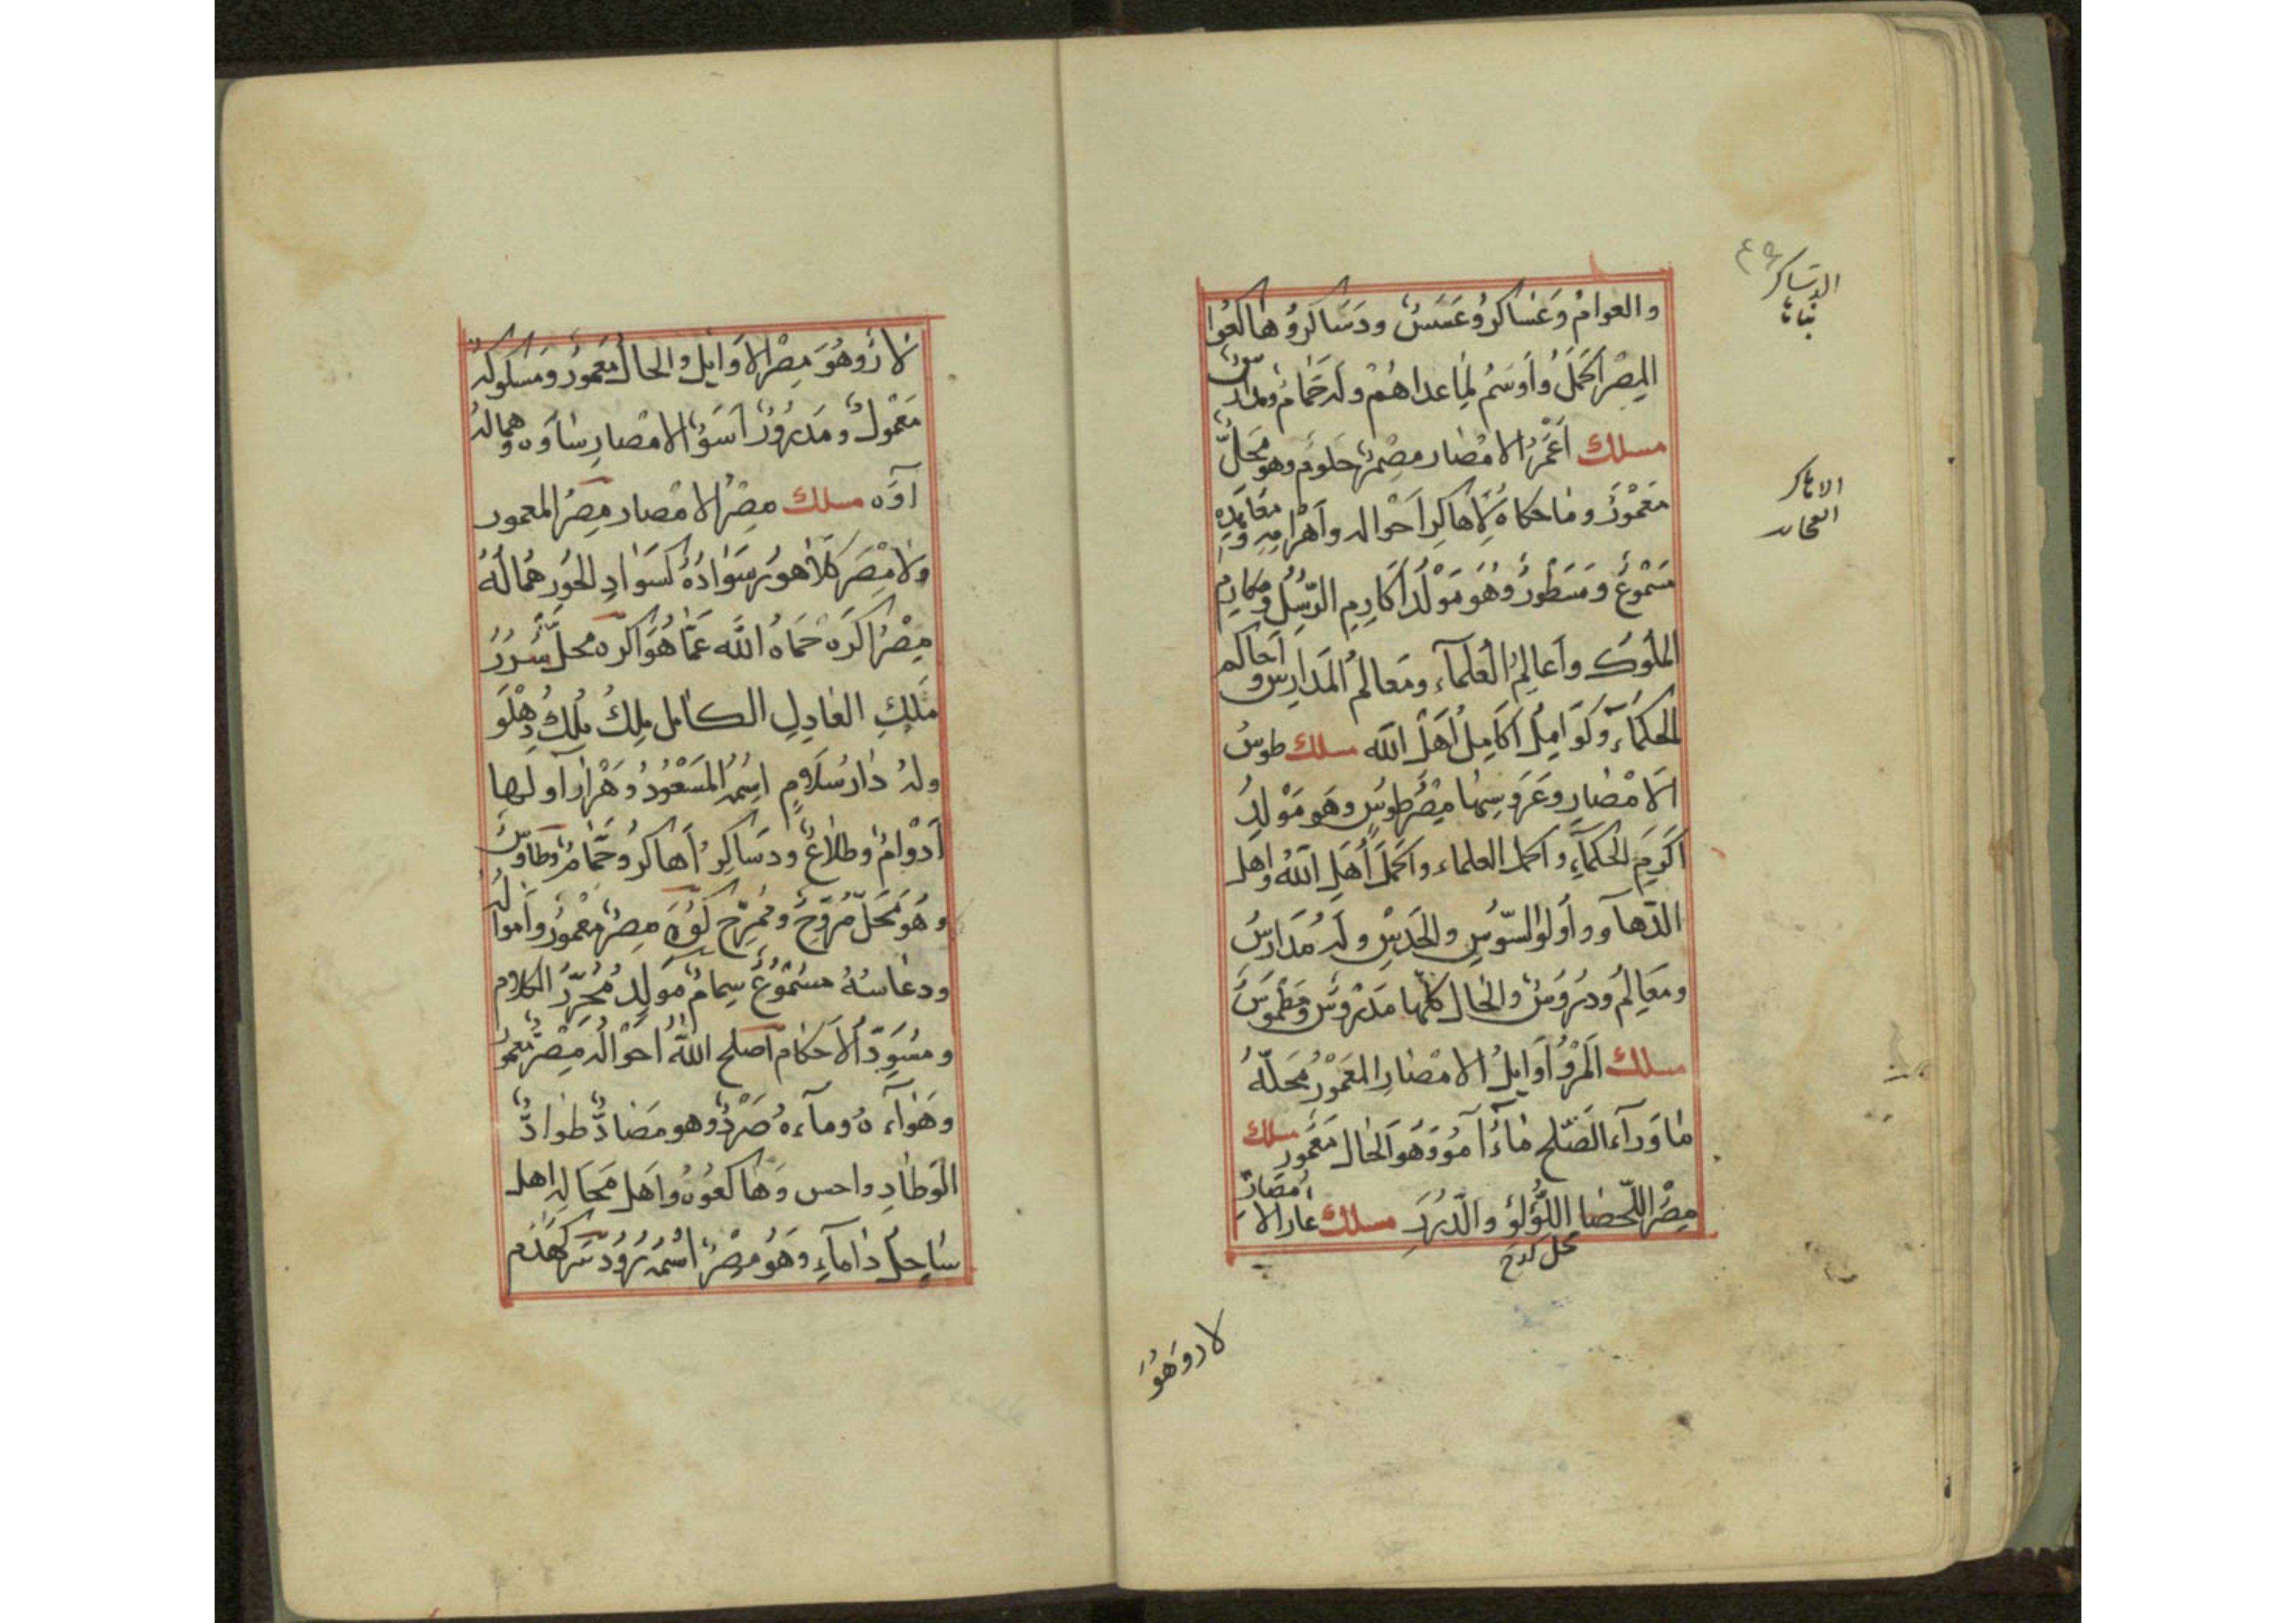 والعوام وعساكر وعسس ودساكر وهاكعوا
المصر اكمل واوسم لما عداهم وله حمام ومدارس
مسلك اعمر الامصار مصر حلوم وهو محل
معمور وما حكاه لاهاكر احواله واهرامه
مسموع ومسطور وهو مولد اكارم الرسل ومكارم
الملوك واعالم العلماء ومعالم المدارس واحاكم
الحكماء وكوامل اكامل اهل الله مسلك طوس
الامصار وعروسها مصر طوس وهو مولد
اكرم الحكماء واكمل العلماء واكمل اهل الله واهل
الدهاء واولوا السوس والحدس وله مدارس
ومعالم ودروس والحال كلها مدروس ومطموس
مسلك المرو اوايل الامصار المعمور محله
ما وراء الصلح ماء آمو وهو الحال معمور مسلك
مصر اللحصا اللؤلؤ والدرر مسلك عار الامصار
محل
لار وهو
الدساكر
بنايات
الاهاكر
العجائب
لار وهو مصر الاوايل والحال معمور ومسلوكه
معمول ومدروز اسوء الامصار ساوه وهماله
آوه مسلك مصر الامصار مصر المعمور
ولا مصر كلاهور سواده كسواد الحور هماله
مصر اكره حماه الله عما هو اكره محل سرر
ملك العادل الكامل ملك ملك دهلو
وله دار سلام اسمه المسعود وهرار اولها
ادوام وطلاع ودساكر اهاكر وحمام وطاوس
وهو محل مروح وممرح كوه مصر معمور وامواله
ودعاسه مسموع سمام مولد محرر الكلام
ومسود الاحكام اصلح الله احواله مصر معمور
وهواءه وماءه صرد وهو مضاد طواد
الوطاد واحس وهاكعوه واهل محاله اهل
ساحل داماء وهو مصر اسمه سرودسر كهدم